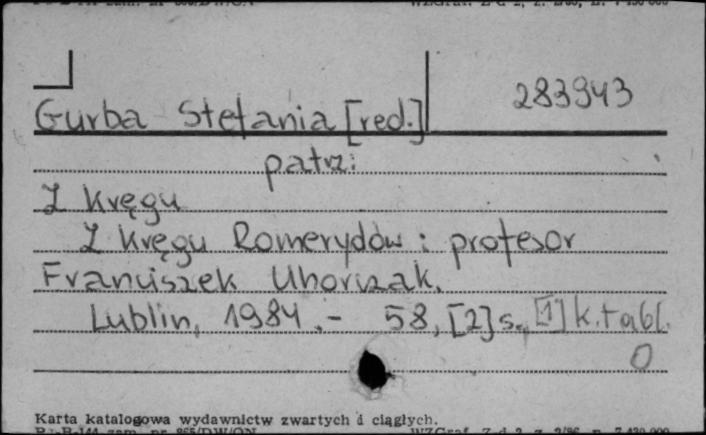 283943
Gurba Stefania [red.]
patrz:
Z kręgu
Z kręgu Romerydów : profesor
Franciszek Uhorczak.
Lublin, 1984. - 58, [2] s., [1] k. tabl.
0
Karta katalogowa wydawnictw zwartych i ciągłych.